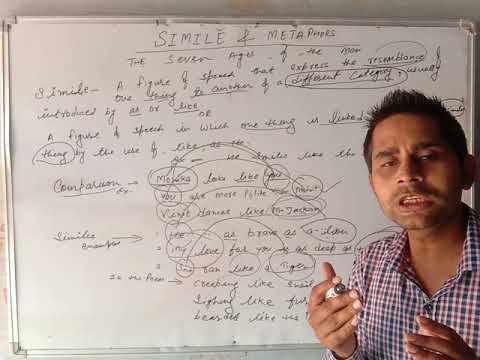 SIMILE & METAPHORS
THE Seven Ages of the Man
Simile - A figure of speech that express the resemblance of
one thing to another of a different category usually
introduced by as or like.
OR
A figure of speech in which one thing is linked
thing by the use of like, as
ex - He smiles like the
Comparison ex. → Monika looks like you
You are more polite Mohit
dances like Mr. Jackson
Similes Examples → as brave as a lion
= my love for you is as deep as
= ran like a Tiger
In the Poem → Creeping like snail
Sighing like fur
bearded like the